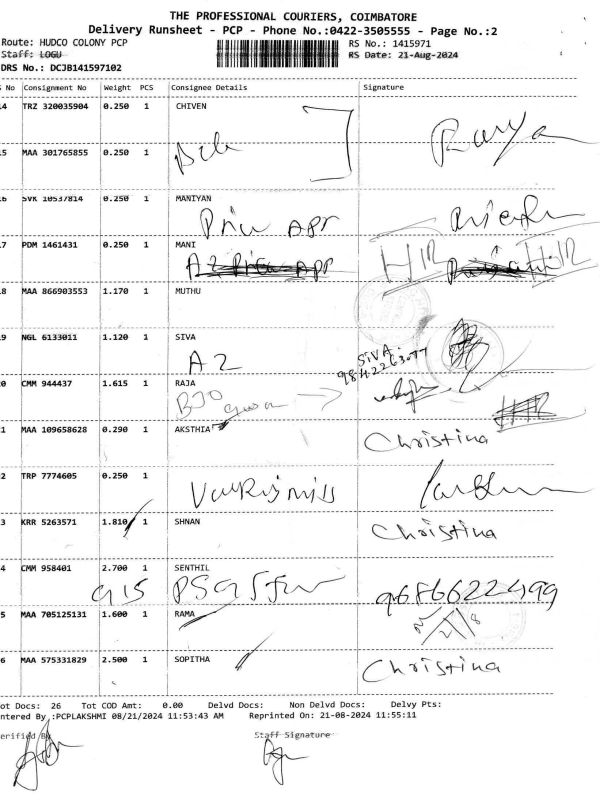 THE PROFESSIONAL COURIERS, COIMBATORE
Delivery Runsheet - PCP - Phone No.:0422-3505555 - Page No.:2
Route: HUDCO COLONY PCP RS No.: 1415971
Staff: LOGU RS Date: 21-Aug-2024
DRS No.: DCJB141597102
No Consignment No Weight PCS Consignee Details Signature
4 TRZ 320035904 0.250 1 CHIVEN
5 MAA 301765855 0.250 1
6 SVK 10537814 0.250 1 MANIYAN
7 PDM 1461431 0.250 1 MANI
8 MAA 866903553 1.170 1 MUTHU
9 NGL 6133011 1.120 1 SIVA
A2 SIVA.
0 CMM 944437 1.615 1 RAJA
1 MAA 109658628 0.290 1 AKSTHIA
Christina
2 TRP 7774605 0.250 1
3 KRR 5263571 1.810 1 SHNAN
Christina
4 CMM 958401 2.700 1 SENTHIL
915 9686622499
5 MAA 705125131 1.600 1 RAMA
6 MAA 575331829 2.500 1 SOPITHA
Christina
ot Docs: 26 Tot COD Amt: 0.00 Delvd Docs: Non Delvd Docs: Delvy Pts:
ntered By :PCPLAKSHMI 08/21/2024 11:53:43 AM Reprinted On: 21-08-2024 11:55:11
erified By Staff Signature